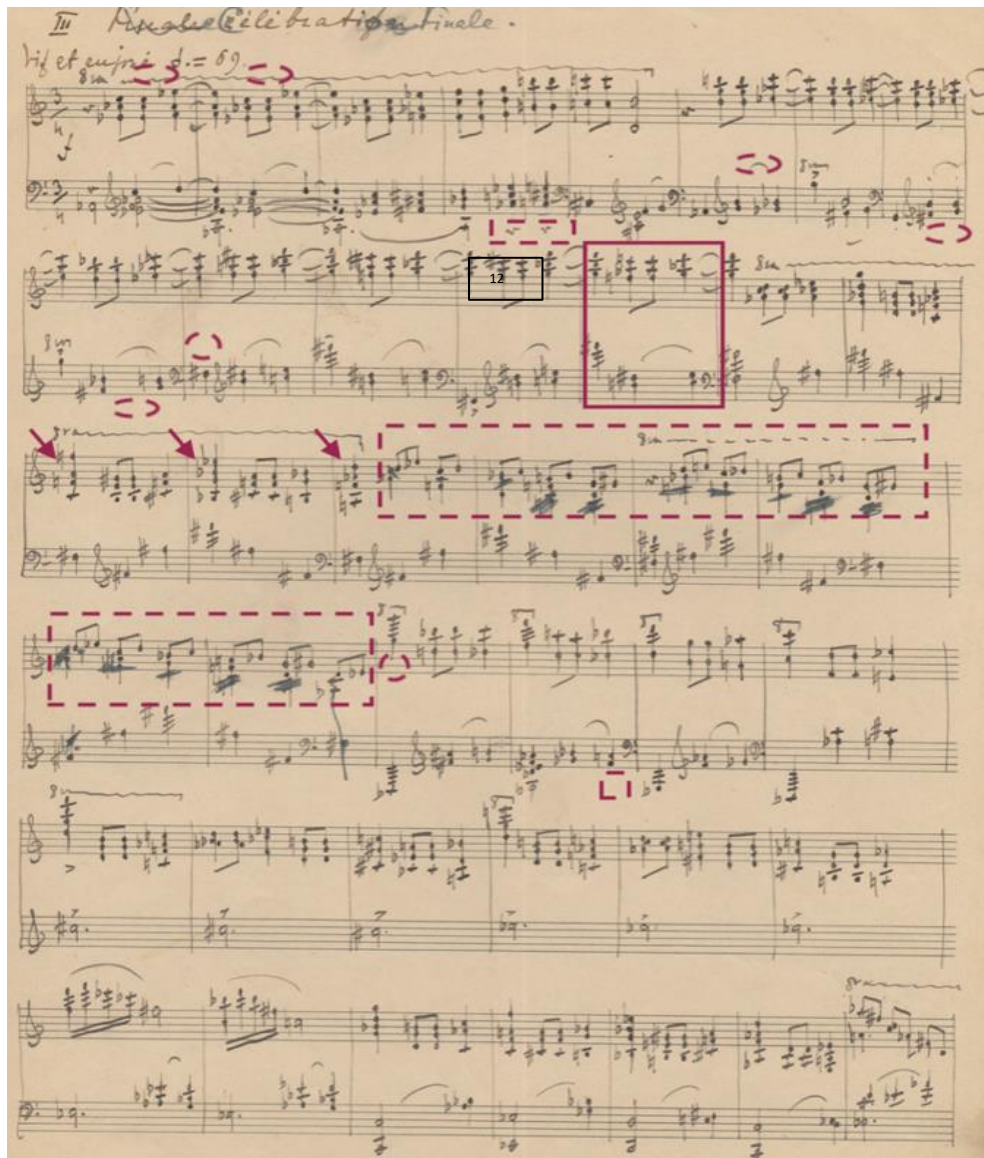 III Finale Célébration Finale.
Vif et enjoué ♩. = 69.
8va
3
4
f
3
4
8va
12
8va
8va
8va
8va
8
8
8
8
8va
8
8va